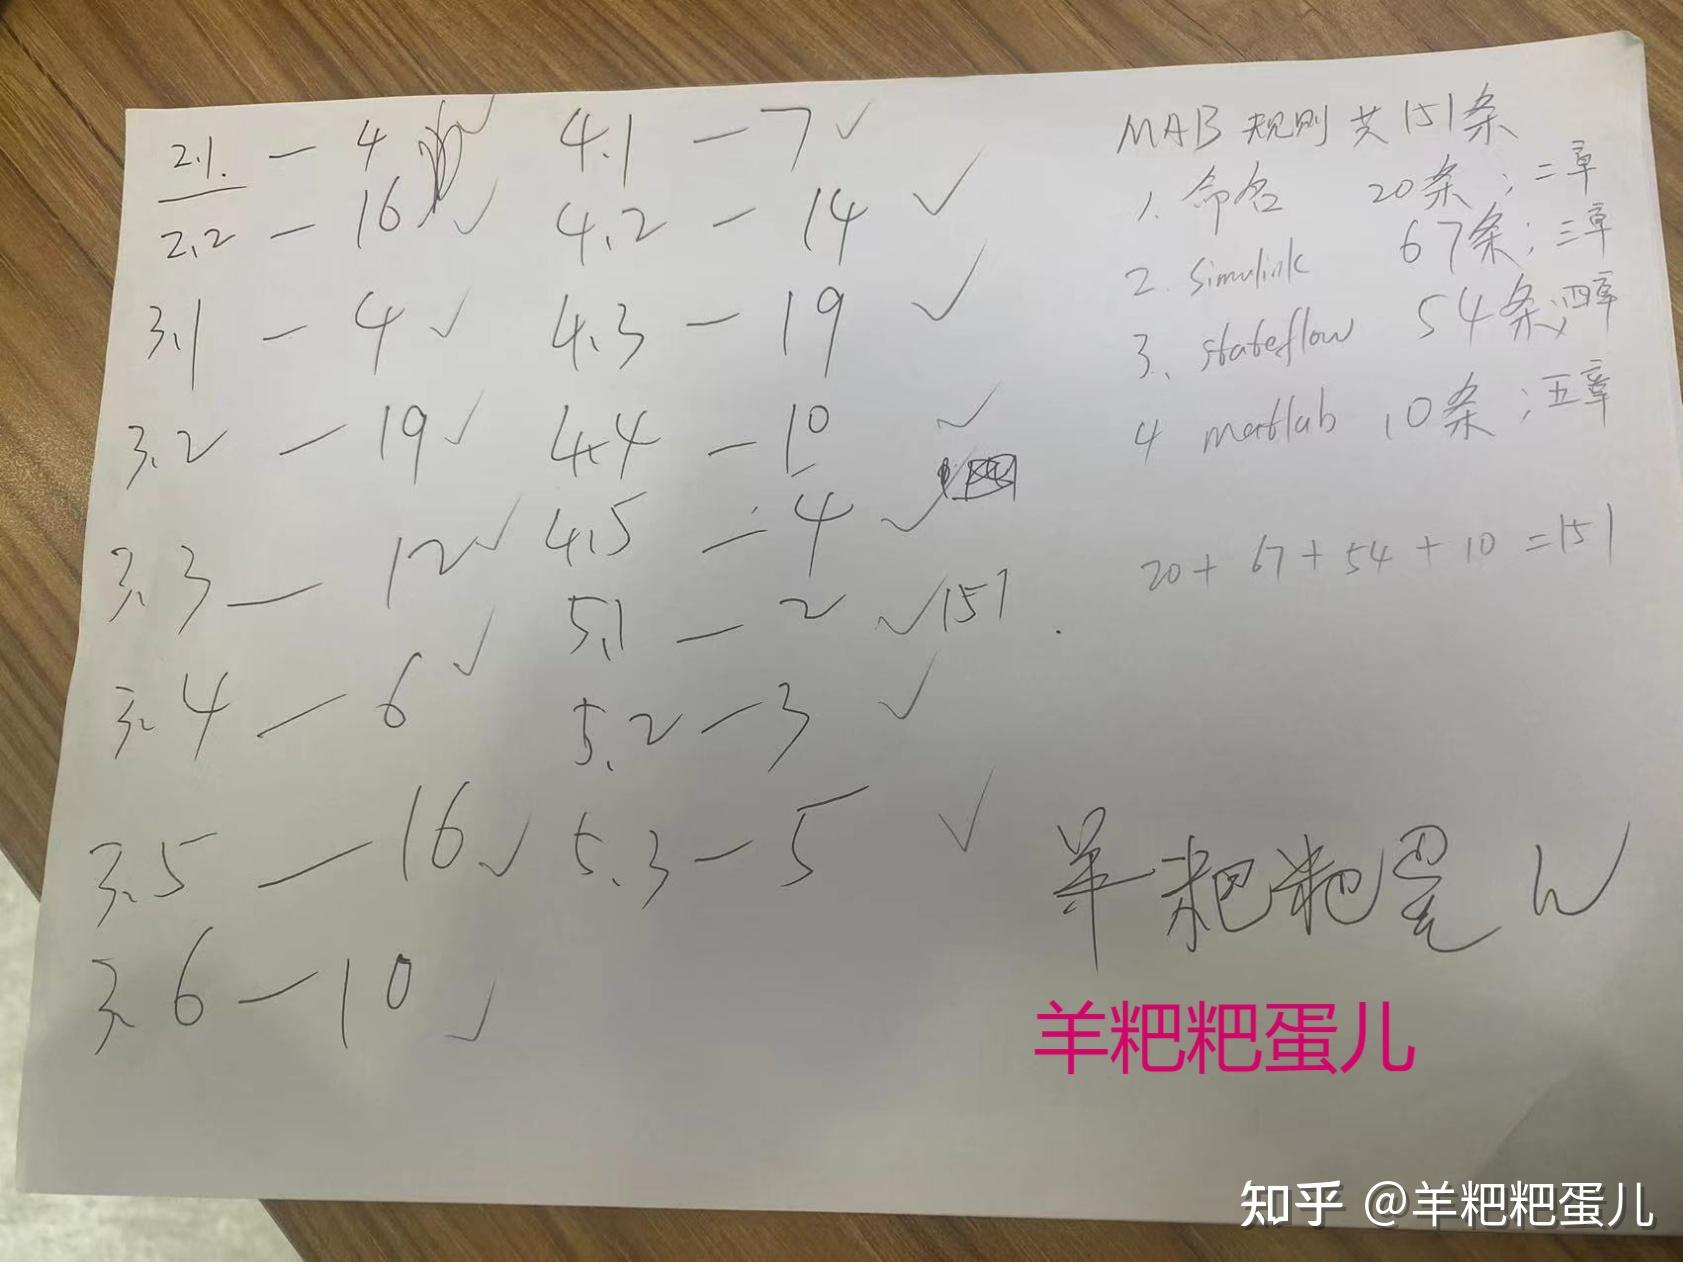 2.1. — 4 ✓
2.2 — 16 ✓
3.1 — 4 ✓
3.2 — 19 ✓
3.3 — 12 ✓
3.4 — 6 ✓
3.5 — 16 ✓
3.6 — 10 ✓
4.1 — 7 ✓
4.2 — 14 ✓
4.3 — 19 ✓
4.4 — 10 ✓
4.5 — 4 ✓
5.1 — 2 ✓ 151
5.2 — 3 ✓
5.3 — 5 ✓
MAB 规则 共 151条
1. 命名 20条；二章
2. simulink 67条；三章
3. stateflow 54条；四章
4 matlab 10条；五章
20 + 67 + 54 + 10 = 151
羊粑粑蛋儿
羊粑粑蛋儿
知乎 @羊粑粑蛋儿